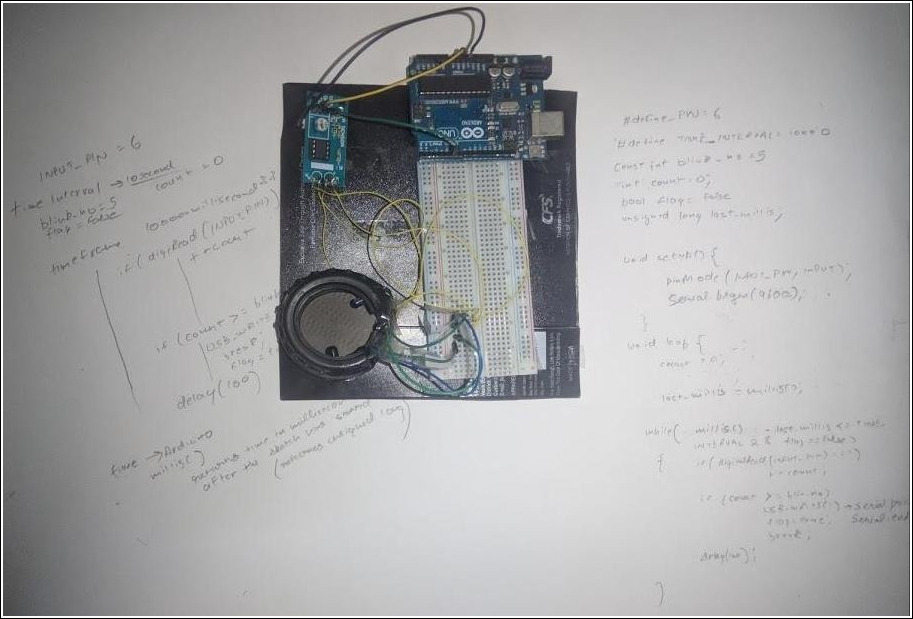 INPUT_PIN = 6
time Interval → 10 second
count = 0
blink-no = 5
flag = False
timeframe 10000 millisecond
if (digiRead (INPUT-PIN)
++count
if (count >= blink
USB.wri
break;
flag = t
delay(100)
time → Arduino
millis()
returns time in millisecon
after the sketch was started
unsigned long)
ARDUINO
UNO
CFS
#define_PIN = 6
#define TIME_INTERVAL = 10000
Const int blink_no = 5
int count = 0;
bool flag = False
unsigned long last-millis;
void setup() {
pinMode (INPUT_PIN, INPUT);
Serial.begin(9600);
}
void loop {
count = 0;
last-millis = millis();
while( millis() - last-millis <= time-
INTERVAL && flag == False)
{ if (digitalRead(input_pin) ==
++count;
if (count >= blink-no)
USB.write() → serial
flag = true; Serial.
break;
delay(100);
}